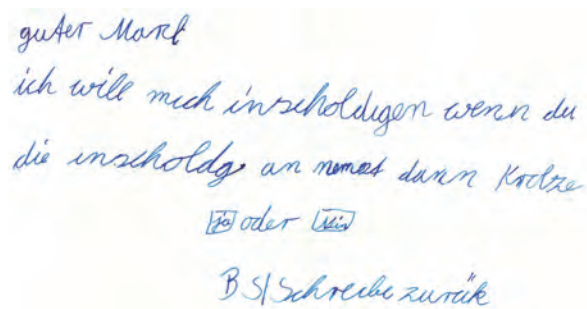 guter Marc
ich will mich inscholdigen wenn du
die inscholdg an nemst dann Krolze
ja oder Nein
BS/Schreibe zurük